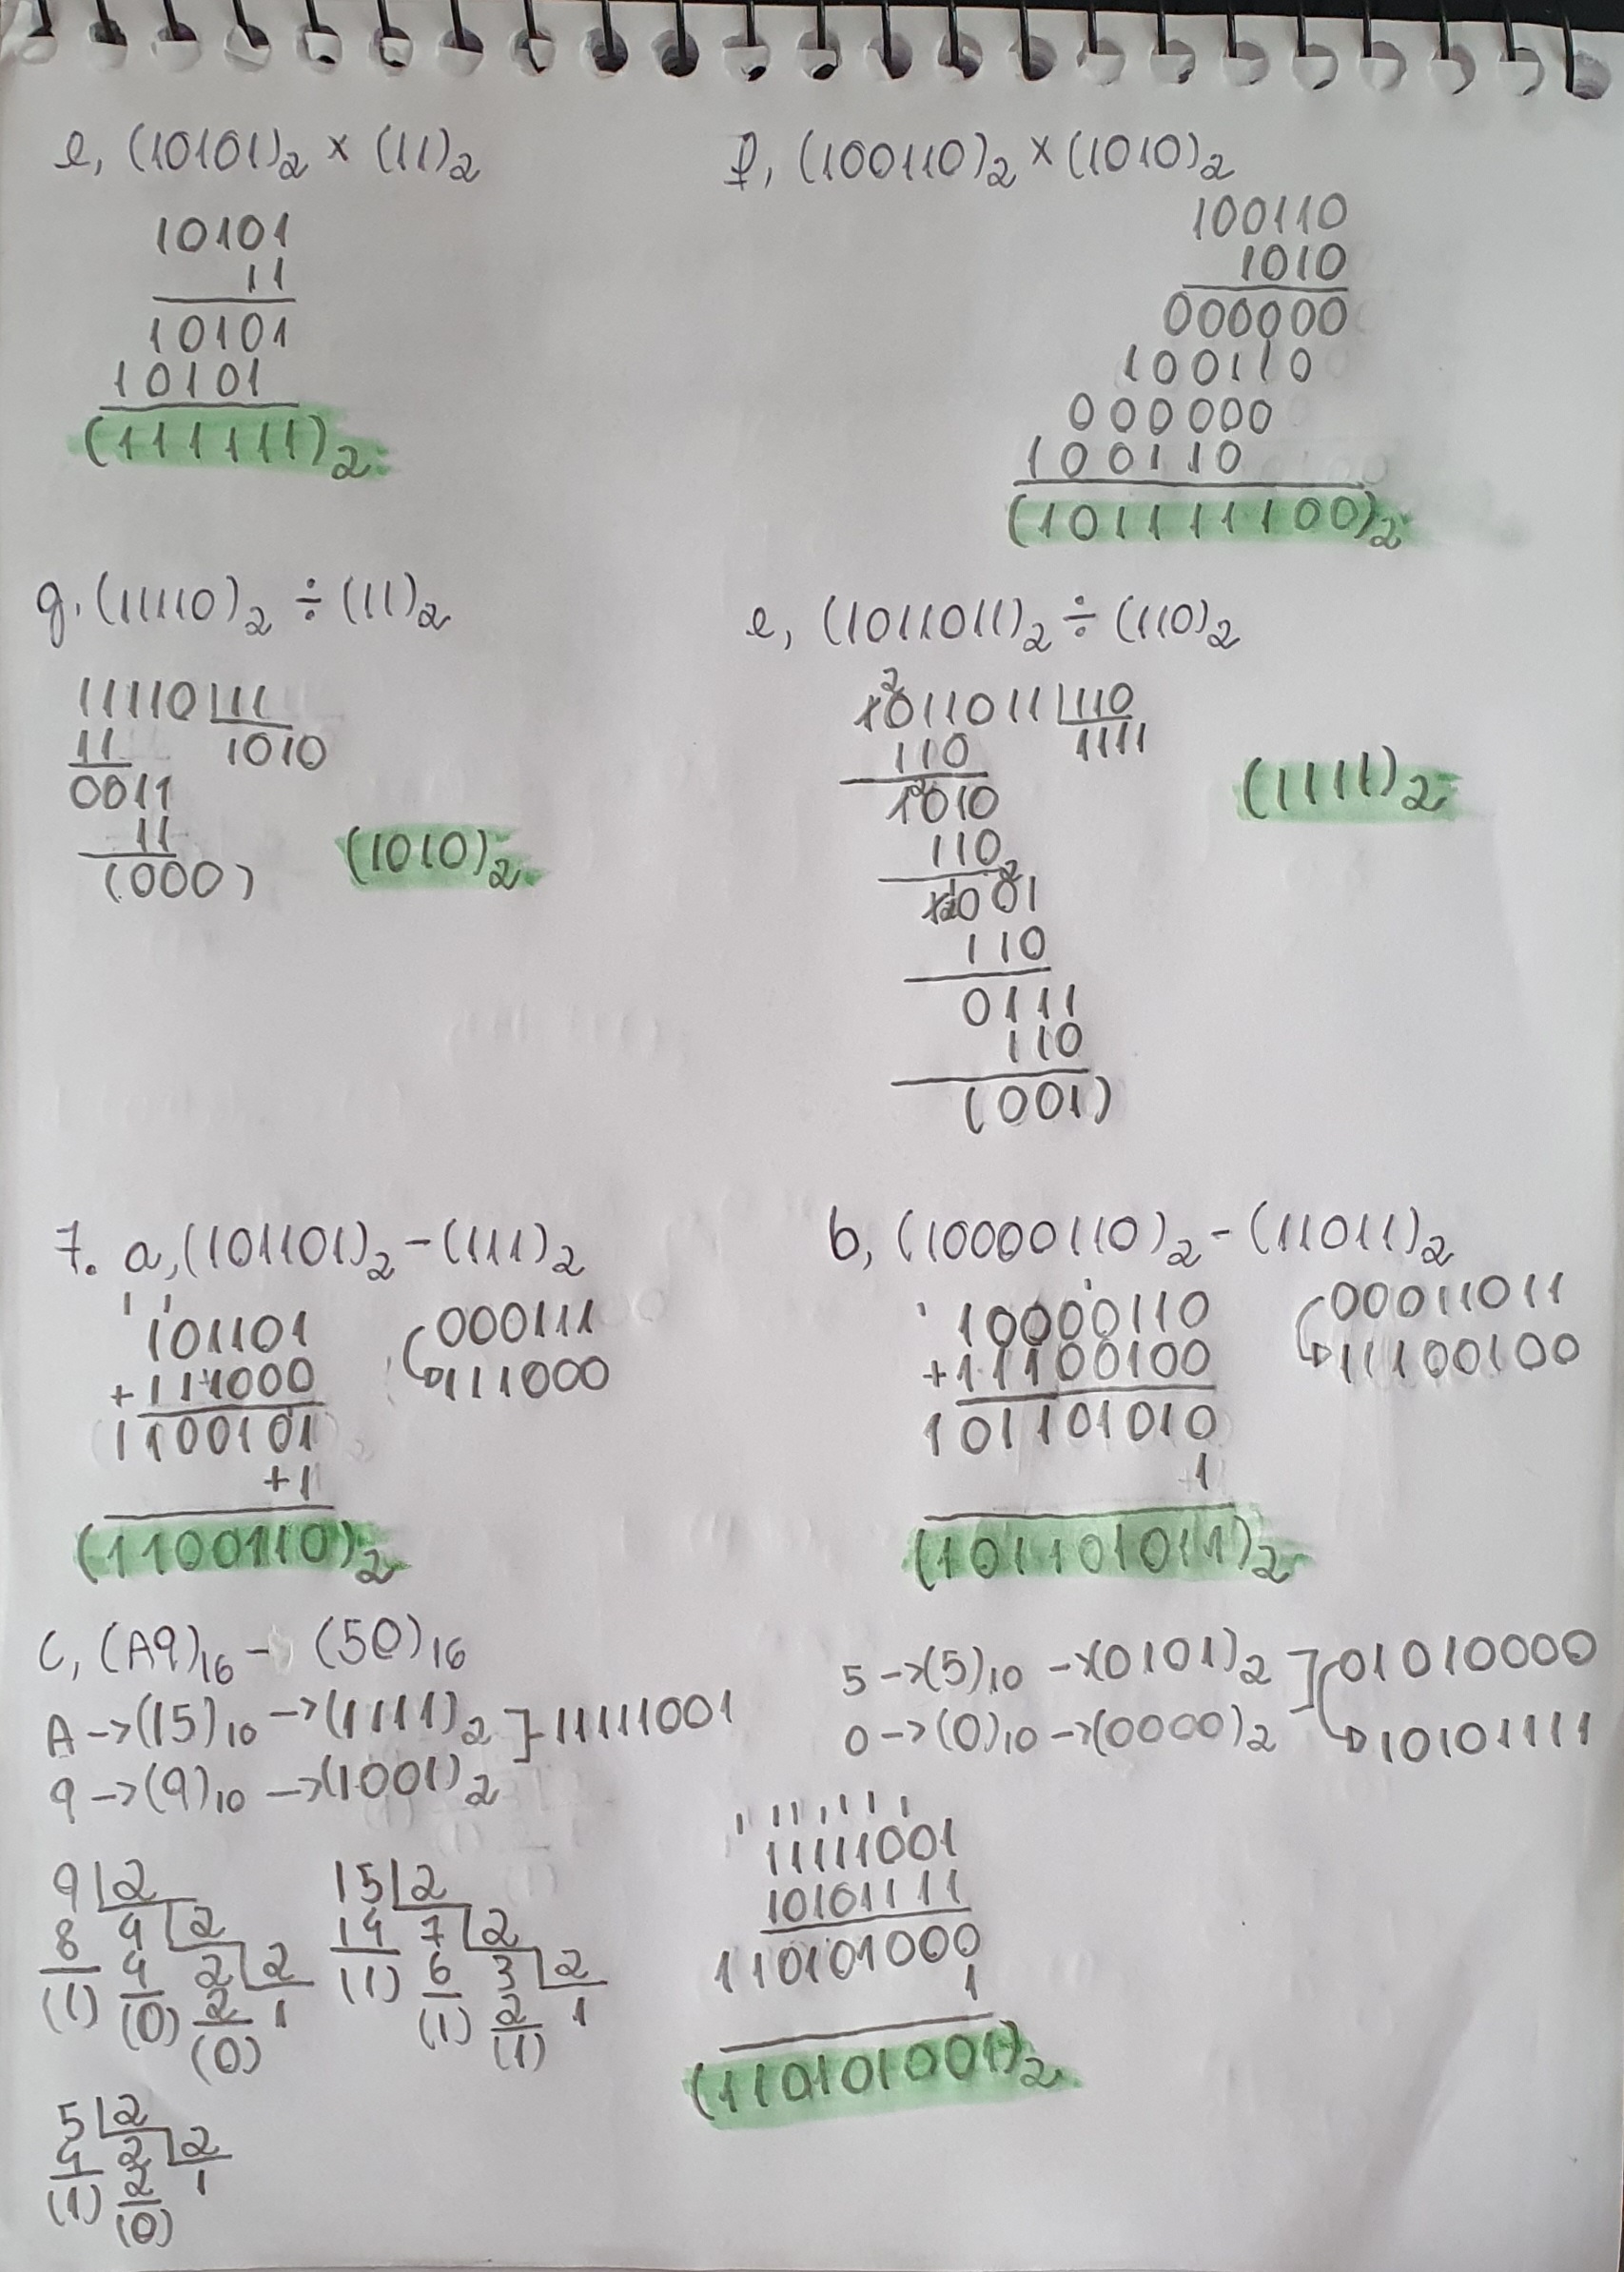 e, (10101)₂ × (11)₂
10101
11
10101
10101
(111111)₂
f, (100110)₂ × (1010)₂
100110
1010
000000
100110
000000
100110
(101111100)₂
g. (11110)₂ ÷ (11)₂
11110 11
11 1010
0011
11
(000)
(1010)₂
e, (1011011)₂ ÷ (110)₂
2
1011011 110
110 1111
2
1010
110
2
1001
110
0111
110
(001)
(1111)₂
7. a, (101101)₂ - (111)₂
1 1
101101
+111000
1100101
+1
(1100110)₂
000111
111000
b, (10000110)₂ - (11011)₂
1 1
10000110
+11100100
101101010
1
(101101011)₂
00011011
11100100
C, (A9)₁₆ - (50)₁₆
A -> (15)₁₀ -> (1111)₂ ] - 11111001
9 -> (9)₁₀ -> (1001)₂
5 -> (5)₁₀ -> (0101)₂ ] 01010000
0 -> (0)₁₀ -> (0000)₂ 10101111
9 2
8 4 2
(1) 4 2 2
(0) 2 1
(0)
15 2
14 7 2
(1) 6 3 2
(1) 2 1
(1)
5 2
4 2 2
(1) 2 1
(0)
1 1 1 1 1 1 1
11111001
10101111
110101000
1
(110101001)₂